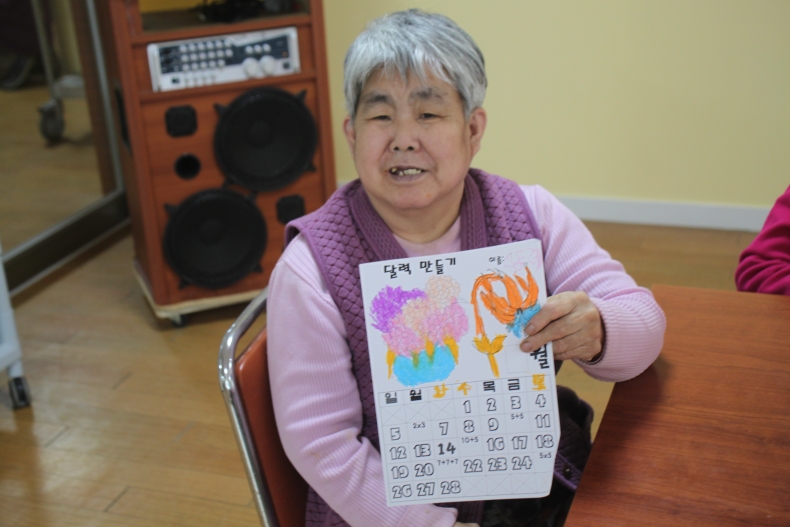 달력 만들기 이름:
월
일 월 화 수 목 금 토
1 2 3 4
5 2x3 7 8 9 5+5 11
12 13 14 10+5 16 17 18
19 20 7+7+7 22 23 24 5x5
26 27 28